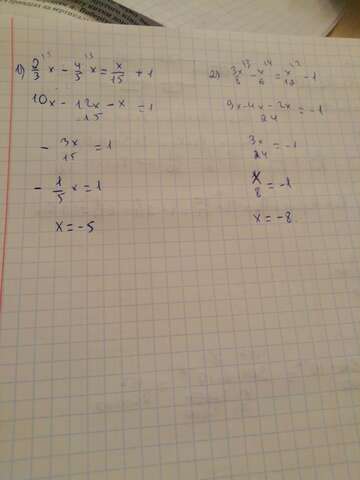 1) 2/3 x - 4/5 x = x/15 + 1
10x - 12x - x / 15 = 1
- 3x/15 = 1
- 1/5 x = 1
x = -5
2) 3x/8 - x/6 = x/12 - 1
9x - 4x - 2x / 24 = -1
3x/24 = -1
x/8 = -1
x = -8